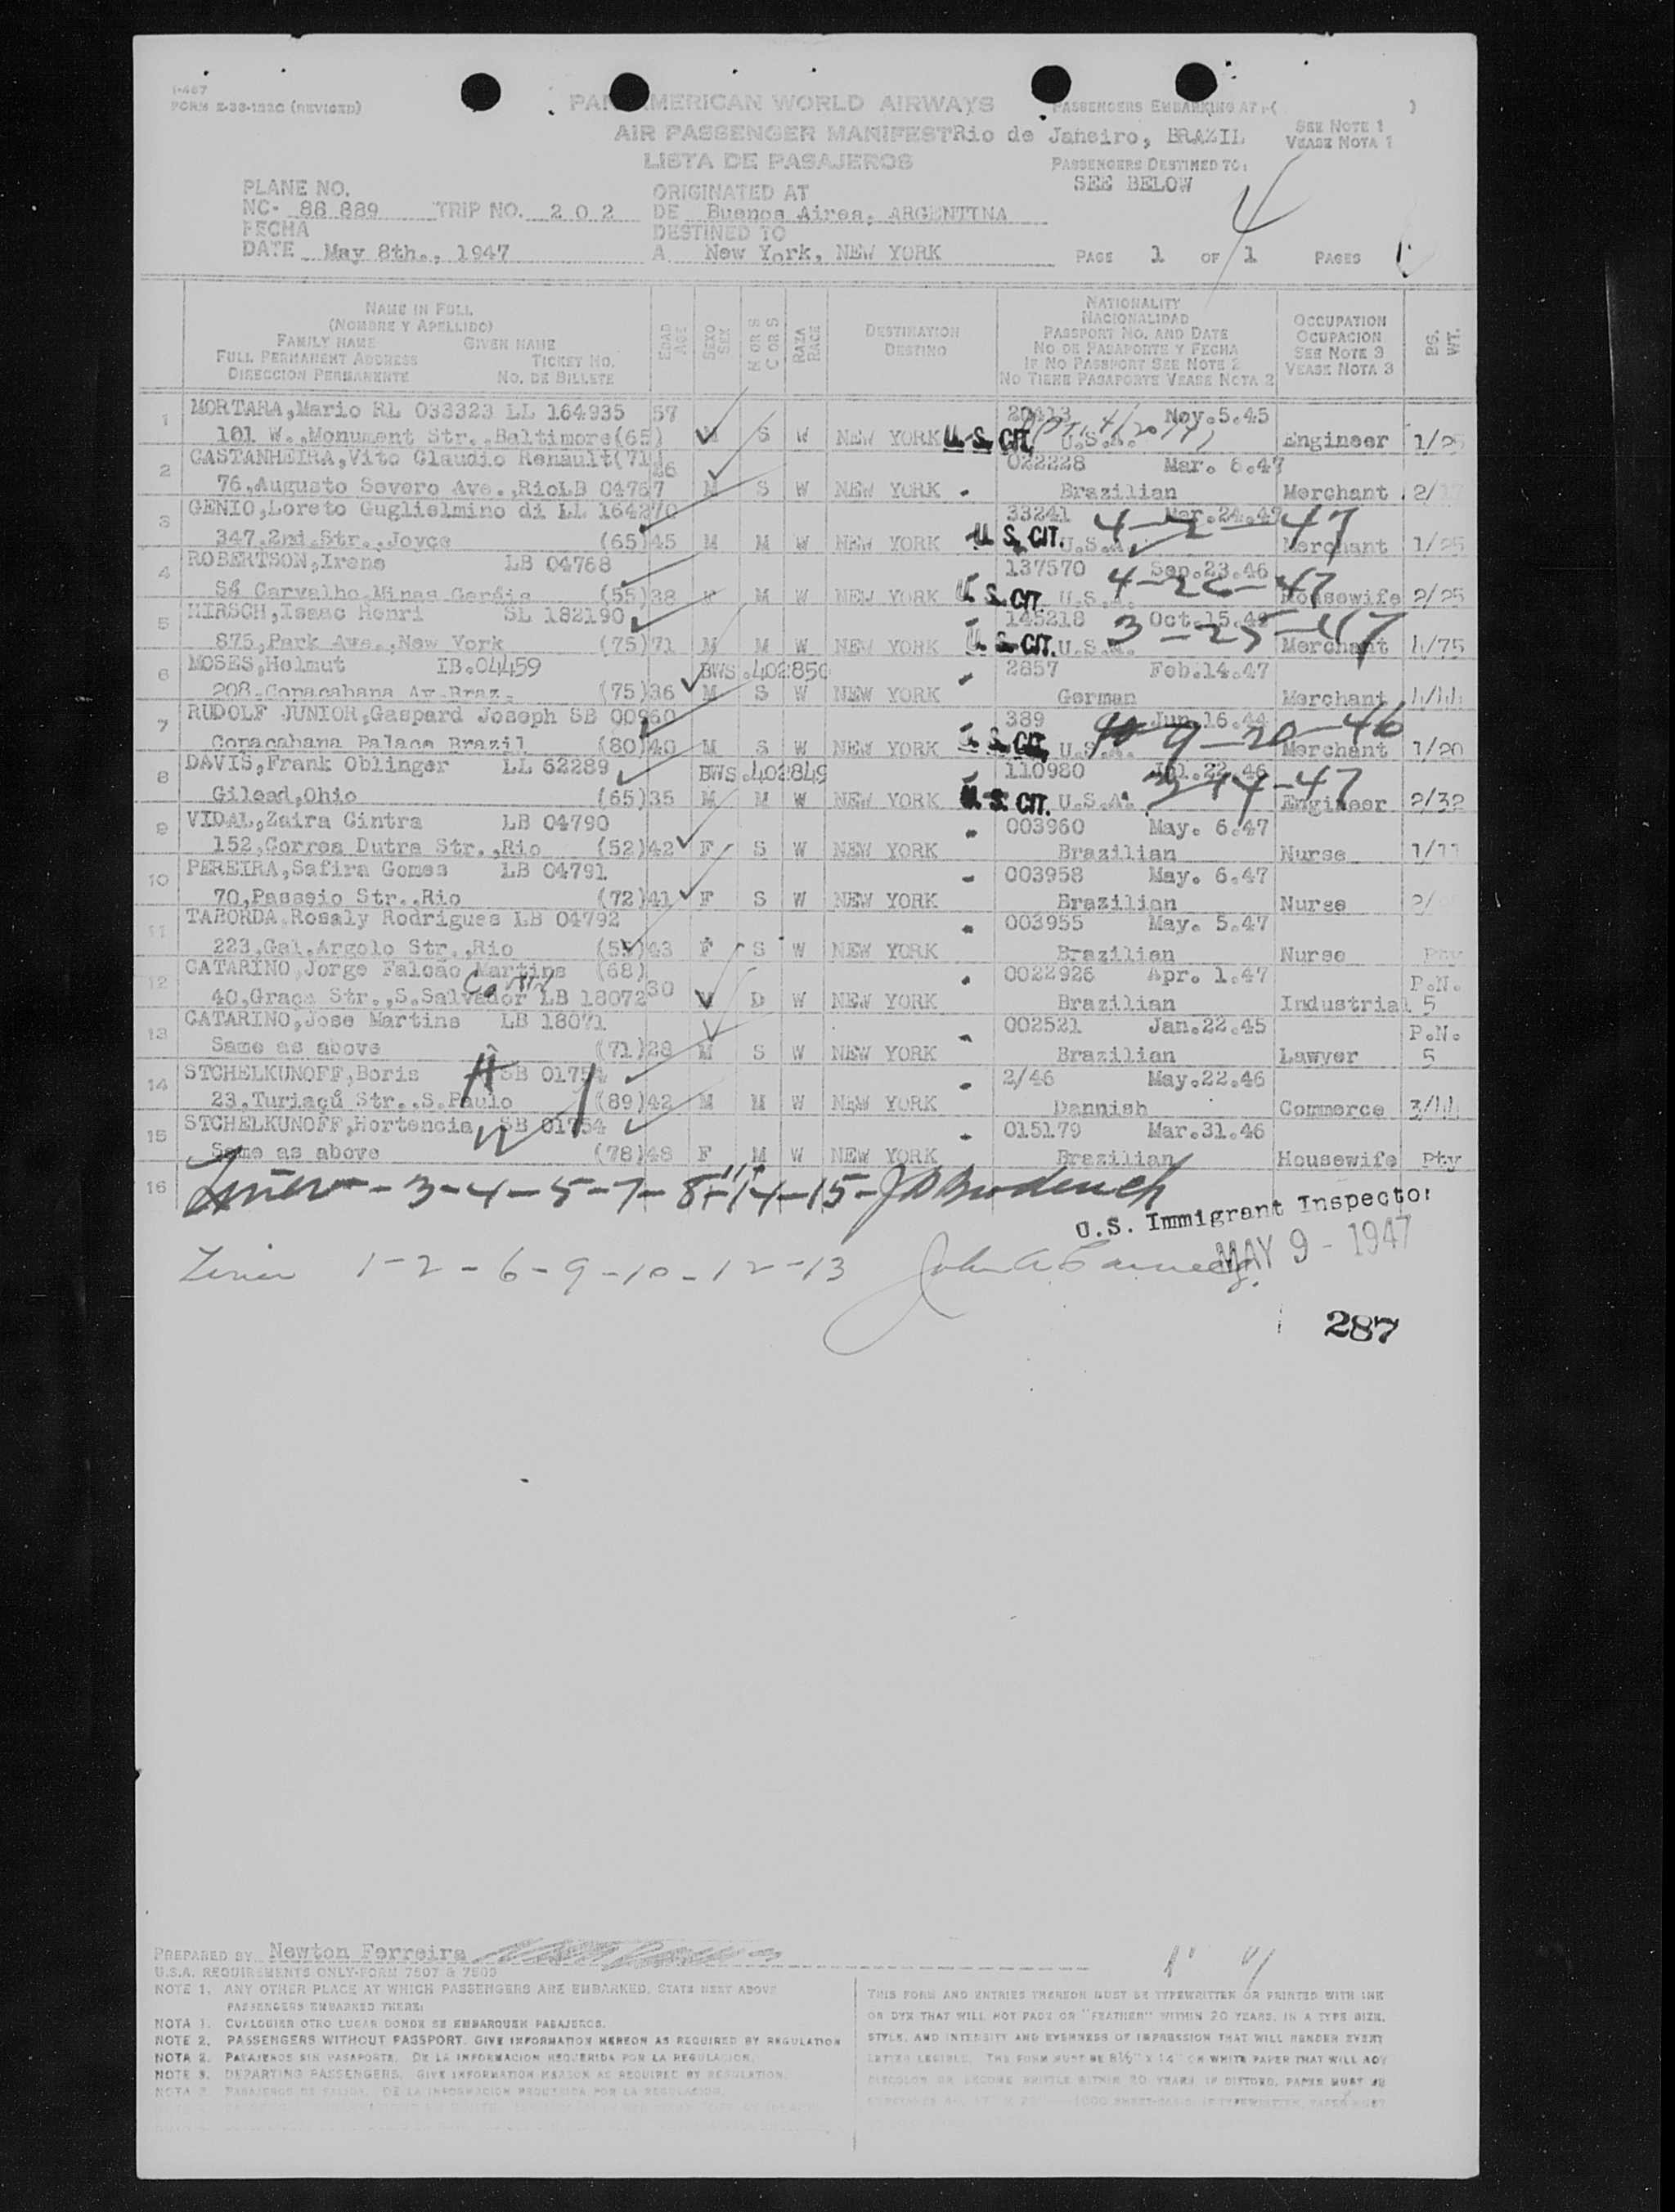 I-467
FORM E-38-122C (REVISED)
PAN AMERICAN WORLD AIRWAYS
PASSENGERS EMBARKING AT:( )
AIR PASSENGER MANIFEST Rio de Janeiro, BRAZIL
SEE NOTE 1
VEASE NOTA 1
LISTA DE PASAJEROS
PASSENGERS DESTINED TO:
SEE BELOW
4
PLANE NO.
NC- 88 889 TRIP NO. 2 0 2
FECHA
DATE May 8th., 1947
ORIGINATED AT
DE Buenos Aires, ARGENTINA
DESTINED TO
A New York, NEW YORK
PAGE 1 OF 1 PAGES
NAME IN FULL
(NOMBRE Y APELLIDO)
FAMILY NAME GIVEN NAME
FULL PERMANENT ADDRESS TICKET NO.
DIRECCION PERMANENTE NO. DE BILLETE
EDAD AGE
SEXO SEX
M OR S C OR S
RAZA RACE
DESTINATION
DESTINO
NATIONALITY
NACIONALIDAD
PASSPORT NO. AND DATE
NO DE PASAPORTE Y FECHA
IF NO PASSPORT SEE NOTE 2
NO TIENE PASAPORTE VEASE NOTA 2
OCCUPATION
OCUPACION
SEE NOTE 3
VEASE NOTA 3
BG. WT.
1 MORTARA,Mario RL 033323 LL 164935 57 20413 Nov.5.45
101 W.,Monument Str.,Baltimore(65) M S W NEW YORK U.S. CIT. U.S.A. Engineer 1/25
2 CASTANHEIRA,Vito Claudio Renault(71) 26 022228 Mar. 8.47
76,Augusto Severo Ave.,RioLB 04767 M S W NEW YORK Brazilian Merchant 2/
3 GENIO,Loreto Guglielmino di LL 164270 33241 Mar.24.47 4-2-47
347.2nd.Str.,Joyce (65)45 M M W NEW YORK U.S. CIT. U.S.A. Merchant 1/25
4 ROBERTSON,Irene LB 04768 137570 Sep.23.46 4-22-47
Sá Carvalho,Minas Geráis (55)38 F M W NEW YORK U.S. CIT. U.S.A. Housewife 2/25
5 HIRSCH,Isaac Henri SL 182190 145218 Oct.15.46 3-25-47
875,Park Ave.,New York (75)71 M M W NEW YORK U.S. CIT. U.S.A. Merchant 4/75
6 MOSES,Helmut IB.04459 BWS.402850 2857 Feb.14.47
208.Copacabana Av.Braz. (75)36 M S W NEW YORK German Merchant 4/44
7 RUDOLF JUNIOR,Gaspard Joseph SB 00960 389 Jun.16.44 9-20-46
Copacabana Palace Brazil (80)40 M S W NEW YORK U.S. CIT. U.S.A. Merchant 1/20
8 DAVIS,Frank Oblinger LL 52289 BWS.402849 110980 Jul.22.46 3-14-47
Gilead,Ohio (65)35 M M W NEW YORK U.S. CIT. U.S.A. Engineer 2/32
9 VIDAL,Zaira Cintra LB 04790 003960 May. 6.47
152,Correa Dutra Str.,Rio (52)42 F S W NEW YORK Brazilian Nurse 1/11
10 PEREIRA,Safira Gomes LB 04791 003958 May. 6.47
70,Passeio Str.,Rio (72)41 F S W NEW YORK Brazilian Nurse 2/
11 TABORDA,Rosaly Rodrigues LB 04792 003955 May. 5.47
223,Gal.Argolo Str.,Rio (55)43 F S W NEW YORK Brazilian Nurse Pty
12 CATARINO,Jorge Falcão Martins (68) 0022926 Apr. 1.47 P.N.
40,Graça Str.,S.Salvador LB 18072 30 M D W NEW YORK Brazilian Industrial 5
13 CATARINO,Jose Martins LB 18071 002521 Jan.22.45 P.N.
Same as above (71)28 M S W NEW YORK Brazilian Lawyer 5
14 STCHELKUNOFF,Boris SB 01754 2/46 May.22.46
23.Turiaçú Str.,S.Paulo (89)42 M M W NEW YORK Dannish Commerce 3/44
15 STCHELKUNOFF,Hortencia SB 01754 015179 Mar.31.46
Same as above (78)48 F M W NEW YORK Brazilian Housewife Pty
16 Lines - 3-4-5-7-8-11-14-15-
U.S. Immigrant Inspector
Lines 1-2-6-9-10-12-13 John A
MAY 9 - 1947
287
PREPARED BY Newton Ferreira
U.S.A. REQUIREMENTS ONLY-FORM 7507 & 7509
NOTE 1. ANY OTHER PLACE AT WHICH PASSENGERS ARE EMBARKED. STATE NEXT ABOVE
PASSENGERS EMBARKED THERE:
NOTA 1. CUALQUIER OTRO LUGAR DONDE SE EMBARQUEN PASAJEROS.
NOTE 2. PASSENGERS WITHOUT PASSPORT. GIVE INFORMATION HEREON AS REQUIRED BY REGULATION
NOTA 2. PASAJEROS SIN PASAPORTE. DE LA INFORMACION REQUERIDA POR LA REGULACION.
NOTE 3. DEPARTING PASSENGERS. GIVE INFORMATION HEREON AS REQUIRED BY REGULATION.
NOTA 3. PASAJEROS DE SALIDA. DE LA INFORMACION REQUERIDA POR LA REGULACION.
THIS FORM AND ENTRIES THEREON MUST BE TYPEWRITTEN OR PRINTED WITH INK
OR DYE THAT WILL NOT FADE OR "FEATHER" WITHIN 20 YEARS. IN A TYPE SIZE,
STYLE, AND INTENSITY AND EVENNESS OF IMPRESSION THAT WILL RENDER EVERY
LETTER LEGIBLE. THIS FORM MUST BE 8½" X 14" ON WHITE PAPER THAT WILL NOT
DISCOLOR OR BECOME BRITTLE WITHIN 20 YEARS